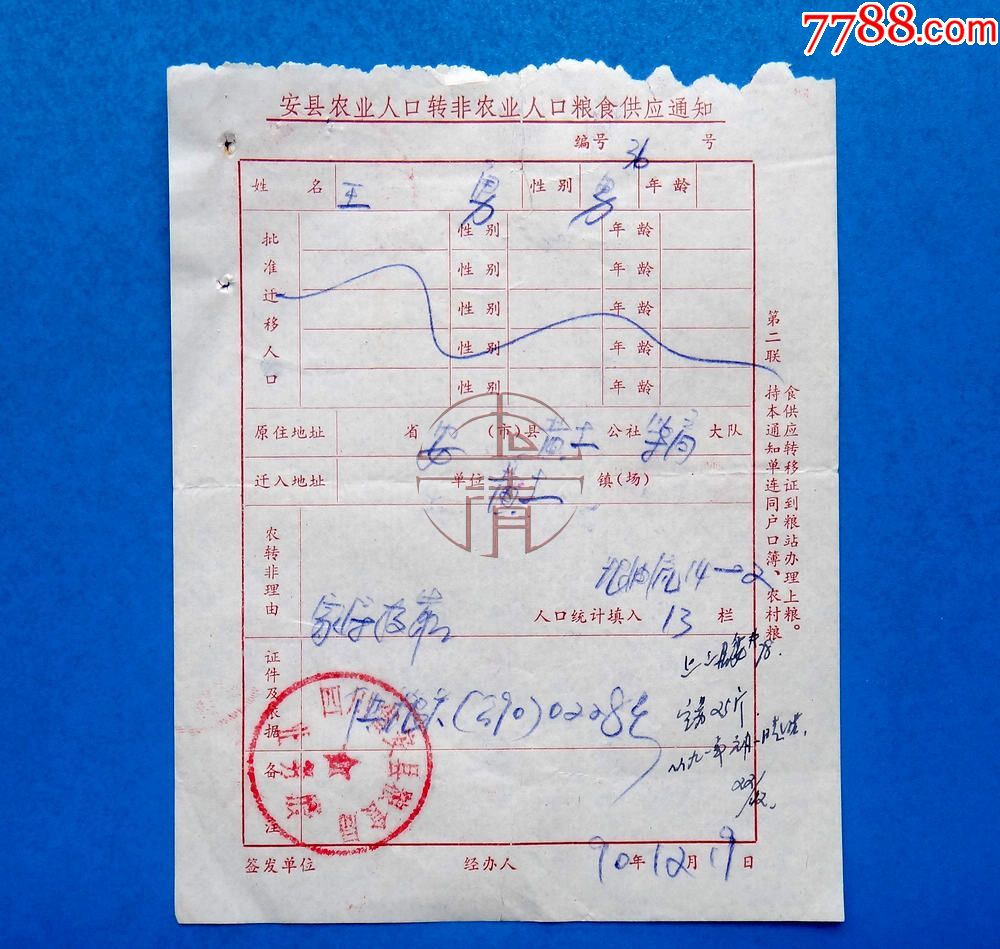 7788.com
中国收藏热线
安县农业人口转非农业人口粮食供应通知
编号 36 号
姓名 王 勇 性别 男 年龄
批准迁移人口
性别 年龄
性别 年龄
性别 年龄
性别 年龄
性别 年龄
原住地址 省 安 (市)县 黄土 公社 大队
迁入地址 单位 黄土 镇(场)
农转非理由
14—2
人口统计填入 13 栏
证件及依据
(90)0228号
定量25斤
备注
签发单位 经办人 90年12月19日
第二联
持本通知单连同户口簿、农村粮
食供应转移证到粮站办理上粮。
安县粮食局
上
清